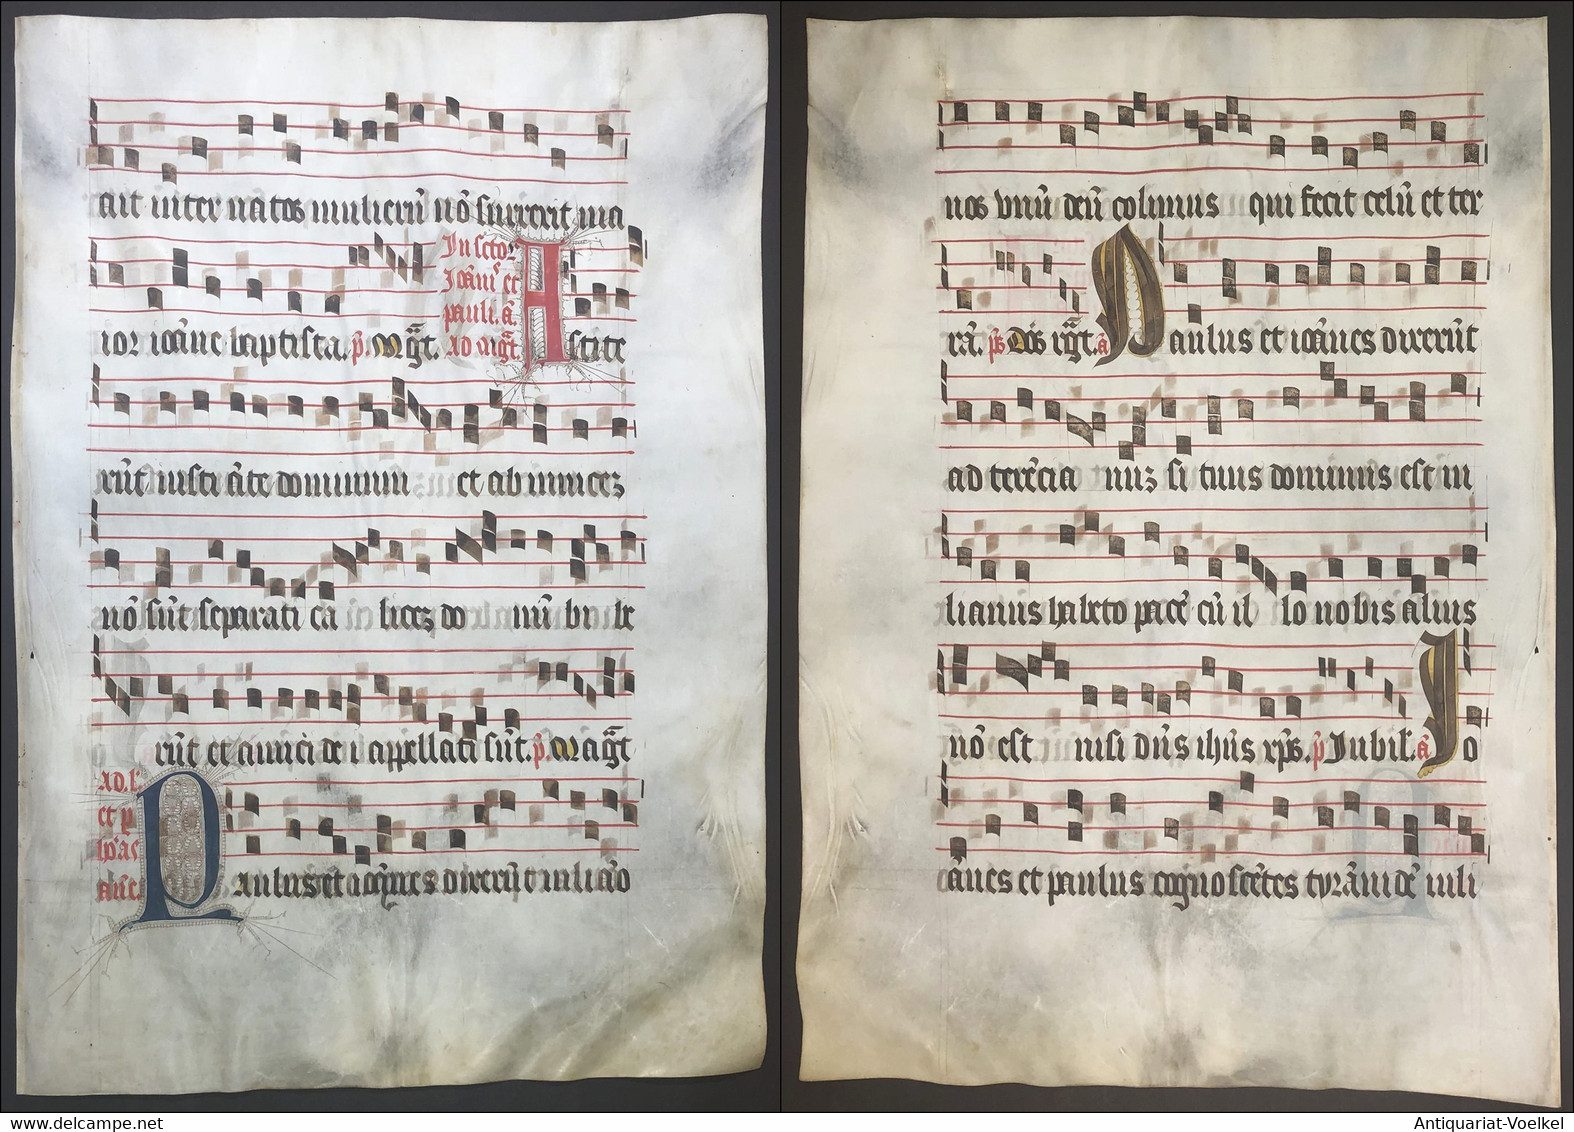 ait inter natos mulierū nō surrexit ma
ior ioāne baptista. p̄. Magt̄.
In sctor
Ioāni et
pauli. a.
ad magt̄.
Astite
rūt iusti āte dominum et ab inuicez
nō sūt separati ca licez do mini bibe
rūt et amici dei appellati sūt. p̄. Magt̄
ad. l.
et p
hōas
añe.
Paulus et ioānes dixerūt iuliāo
nos vnū deū colimus qui fecit celū et ter
rā. ps Dñs rgt. a Paulus et ioānes dixerūt
ad terēcia nuz si tuus dominus est iu
lianus habeto pacē cū il lo nobis alius
nō est nisi dñs ihūs xp̄s. p̄ Iubil. a Io
ānes et paulus cognoscētes tyrānidē iuli
Antiquariat-Voelkel